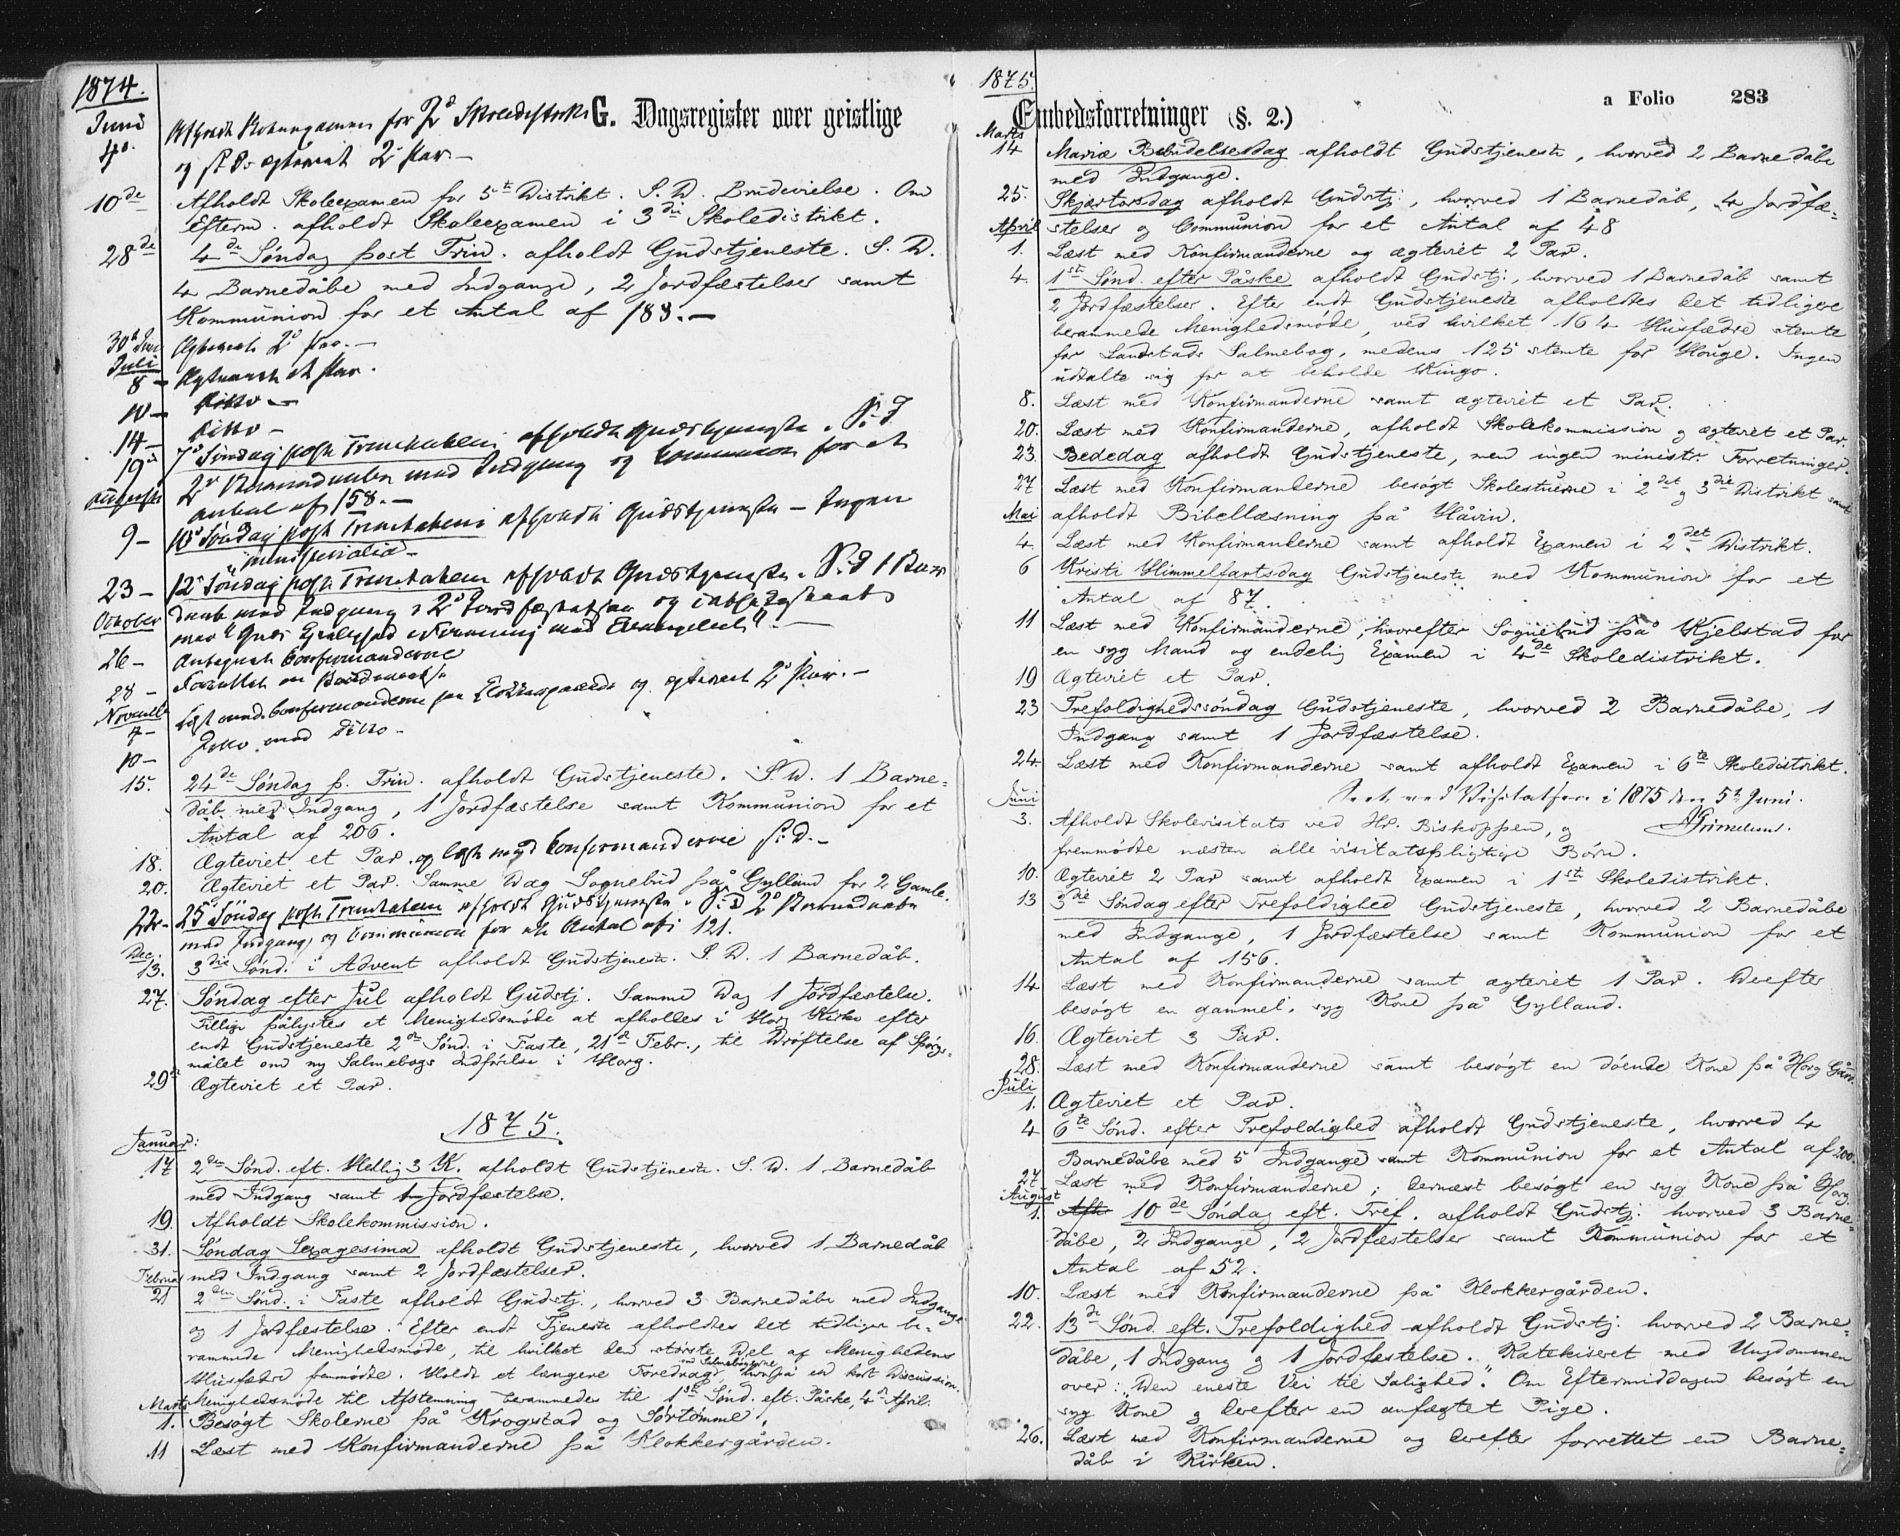 1874.
G. Dagsregister over geistlige
Juni
4de Afholdt Skoleexamen for 2det Skoledistrikt
og S. D. ægteviet 2 Par –
10de Afholdt Skoleexamen for 5te Distrikt. S. D. Brudevielse. Om
Efterm. afholdt Skoleexamen i 3die Skoledistrikt.
28de 4de Søndag post Trin. afholdt Gudstjeneste. S. D.
4 Barnedåbe med Indgange, 2 Jordfæstelser samt
Kommunion for et Antal af 188. –
30te Juni Ægteviet 2 Par. –
Juli
8 – Ægteviet et Par.
10 – Ditto –
14 – Ditto –
19de 7de Søndag post Trinitatem afholdt Gudstjeneste. S. D
2 Barnedaabe med Indgang og Communion for et
Antal af 158. –
August
9 – 10de Søndag post Trinitatem afholdt Gudstjeneste – Ingen
ministerialia –
23 – 12te Søndag post Trinitatem afholdt Gudstjeneste. S. D 1 Barne
daab med Indgang, 2 Jordfæstelser og
October
26 – Antegnet Confirmanderne
28 – Forrettet en
November
7 – Læst med Confirmanderne paa Klokkergaarden og ægteviet 2 Par. –
10 – Ditto med Ditto –
15. 24de Søndag p. Trin. afholdt Gudstjeneste. S. D. 1 Barne=
dåb med Indgang, 1 Jordfæstelse samt Kommunion for et
Antal af 206.
18. Ægteviet et Par. og læst med Confirmanderne S. D. –
20. Ægteviet et Par. Samme Dag Sognebud på Gylland for 2 Gamle.
22 – 25 Søndag post Trinitatem afholdt Gudstjeneste. S. D 2 Barnedaabe
med Indgang og Communion for et Antal af 121.
Dec.
13. 3die Sønd. i Advent afholdt Gudstjeneste. S. D. 1 Barnedåb.
27. Søndag efter Jul afholdt Gudstj. Samme Dag 1 Jordfæstelse.
Tillige pålystes et Menighedsmøde at afholdes i Horg Kirke efter
endt Gudstjeneste 2den Sønd. i Faste, 21de Febr., til Drøftelse af Spørgs=
målet om ny Salmebogs Indførelse i Horg.
29de Ægteviet et Par.
1875.
Januar:
17 2den Sønd. eft. Hellig 3 K. afholdt Gudstjeneste. S. D. 1 Barnedåb
med Indgang samt Jordfæstelse.
19. Afholdt Skolekommission.
31. Søndag Sexagesima afholdt Gudstjeneste, hvorved 1 Barnedåb
med Indgang samt 2 Jordfæstelser.
Februar
21 2den Sønd. i Faste afholdt Gudstj., hvorved 3 Barnedåbe med Indgange
og 1 Jordfæstelse. Efter endt Tjeneste afholdtes det tidligere be=
rammede Menighedsmøde, til hvilket den største Del af Menighedens
Husfædre fremmødte. Holdt et længere Foredrag om Salmebøgerne, hvorpå en kort Discussion.
Menighedsmøde til Afstemning berammedes til 1ste Sønd. eft. Påske, 4de April.
Marts
1. Besøgt Skolerne på Krogstad og Sørtømme.
11 Læst med Konfirmanderne på Klokkergården.
1875.
Embedsforretninger (§. 2.)
a Folio 283
Marts
14 Mariæ Bebudelsesdag afholdt Gudstjeneste, hvorved 2 Barnedåbe
med Indgange.
25. Skjærtorsdag afholdt Gudstj., hvorved 1 Barnedåb, 4 Jordfæ=
stelser og Communion for et Antal af 48
April
1. Læst med Konfirmanderne og ægteviet 2 Par.
4. 1ste Sønd. efter Påske afholdt Gudstj., hvorved 1 Barnedåb samt
2 Jordfæstelser. Efter endt Gudstjeneste afholdtes det tidligere
berammede Menighedsmøde, ved hvilket 164 Husfædre stemte
for Landstads Salmebog, medens 125 stemte for Hauge. Ingen
udtalte sig for at beholde Kingo.
8. Læst med Konfirmanderne samt ægteviet et Par.
20. Læst med Konfirmanderne, afholdt Skolekommission og ægteviet et Par.
23. Bededag afholdt Gudstjeneste, men ingen ministr. Forretninger.
27 Læst med Konfirmanderne besøgt Skolestuerne i 2det og 3die Distrikt samt
afholdt Bibellæsning på Håvin.
Mai
4. Læst med Konfirmanderne samt afholdt Examen i 2det Distrikt.
6 Kristi Himmelfartsdag Gudstjeneste med Kommunion for et
Antal af 87.
11 Læst med Konfirmanderne, hvorefter Sognebud på Kjelstad for
en syg Mand og endelig Examen i 4de Skoledistrikt.
19 Ægteviet et Par.
23 Trefoldighedssøndag Gudstjeneste, hvorved 2 Barnedåbe, 1
Indgang samt 1 Jordfæstelse.
24. Læst med Konfirmanderne samt afholdt Examen i 6te Skoledistrikt.
Seet ved Visitatsen i 1875 den 5te Juni.
A Grimelund.
Juni
3. Afholdt Skolevisitats ved Hr. Biskoppen, og
fremmødte næsten alle visitatspligtige Børn.
10. Ægteviet 2 Par samt afholdt Examen i 1ste Skoledistrikt.
13 3die Søndag efter Trefoldighed Gudstjeneste, hvorved 2 Barnedåbe
med Indgange, 1 Jordfæstelse samt Kommunion for et
Antal af 156.
14 Læst med Konfirmanderne samt ægteviet 1 Par. Derefter
besøgt en gammel, syg Kone på Gylland.
16. Ægteviet 3 Par.
28. Læst med Konfirmanderne samt besøgt en døende Kone på Horg Gård.
Juli
1. Ægteviet et Par.
4 6te Sønd. efter Trefoldighed afholdt Gudstjeneste, hvorved 4
Barnedåbe med 5 Indgange samt Kommunion for et Antal af 200.
27. Læst med Konfirmanderne; dernæst besøgt en syg Kone på Horg.
August
1. Afh. 10de Søndag eft. Tref. afholdt Gudstj. hvorved 3 Barne=
dåbe, 2 Indgange, 2 Jordfæstelser samt Kommunion for et
Antal af 52.
10. Læst med Konfirmanderne på Klokkergården.
22. 13de Sønd. eft. Trefoldighed afholdt Gudstj. hvorved 2 Barne=
dåbe, 1 Indgang og 1 Jordfæstelse. Katekiseret med Ungdommen
over: "Den eneste Vei til Salighed." Om Eftermiddagen besøgt en
syg Kone og derefter en anfægtet Pige.
26. Læst med Konfirmanderne og derefter forrettet en Barne=
dåb i Kirken.